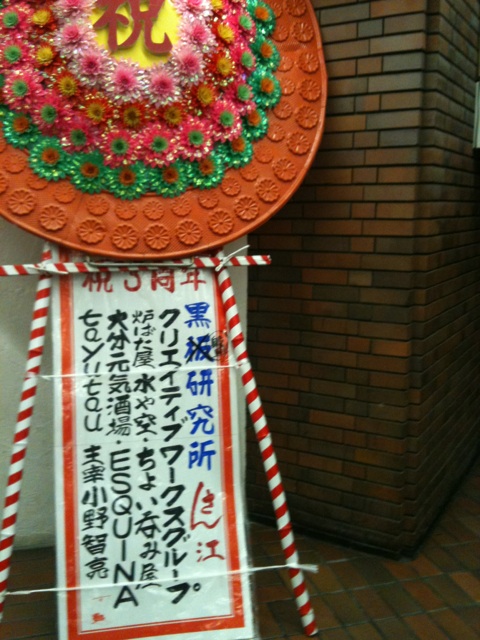 祝
祝5周年
黒板研究所 さん江
クリエイティブワークスグループ
炉ばた屋 水や空・ちょい呑み屋
大分元気酒場・ESQUINA
tayutau 主宰 小野智亮